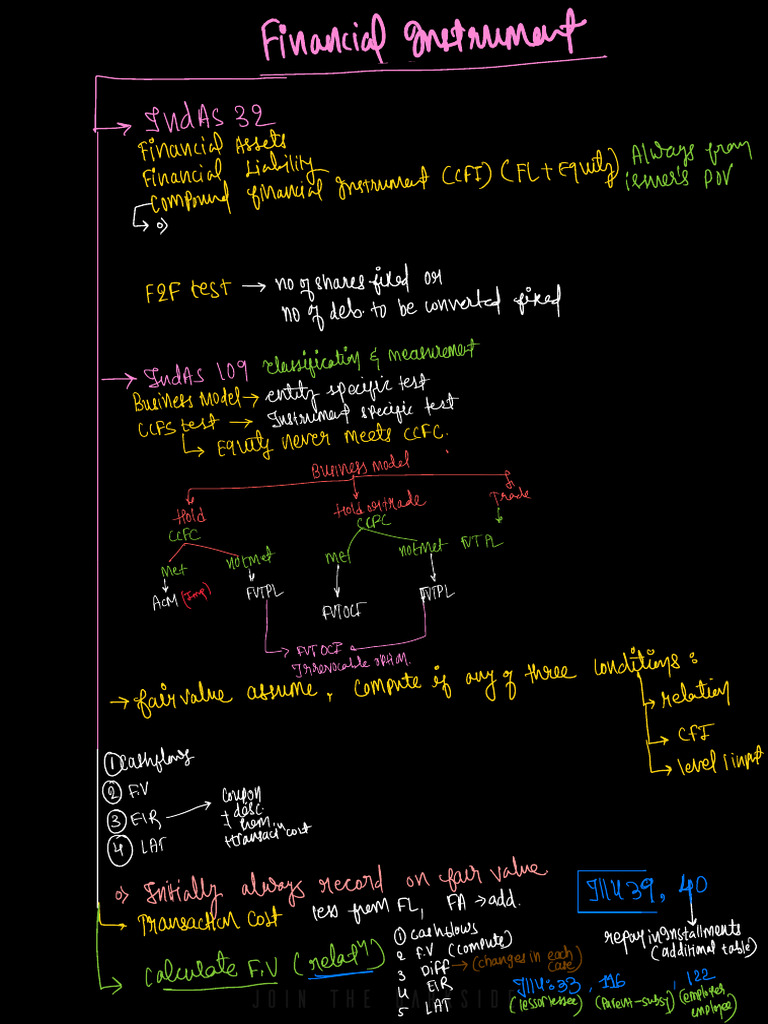 Financial Instrument
→ IndAs 32
Financial Assets
Financial Liability
Compound financial Instrument (CFI) (FL + Equity) Always from issuer's POV
o)
F2F test → no of shares fixed or
no of deb. to be converted fixed
→ IndAs 109 classification & measurement
Business Model → entity specific test
CCFS test → Instrument specific test
↳ Equity never meets CCFC.
Business model
Hold Hold or trade Trade
CCFC CCFC
met not met met not met FVTPL
ACM (Imp) FVTPL FVTOCI FVTPL
→ FVTOCI
Irrevocable option.
→ fair value assume, compute if any of three conditions :
→ relation
→ CFI
→ level 1 input
① cashflows
② F.V
③ EIR → coupon
④ LAT
± disc.
prem.
+ transacn cost
o) Initially always record on fair value
→ Transaction Cost less from FL, FA → add.
Illu 39, 40
repay in Installments
(additional table)
→ calculate F.V (relatn)
① cashflows
2 F.V (compute)
3 Diff → (changes in each case)
4 EIR
5 LAT
Illu: 33, 116, 122
(lessor lessee) (Parent-subsy) (employer employee)
JOIN THE SIDE